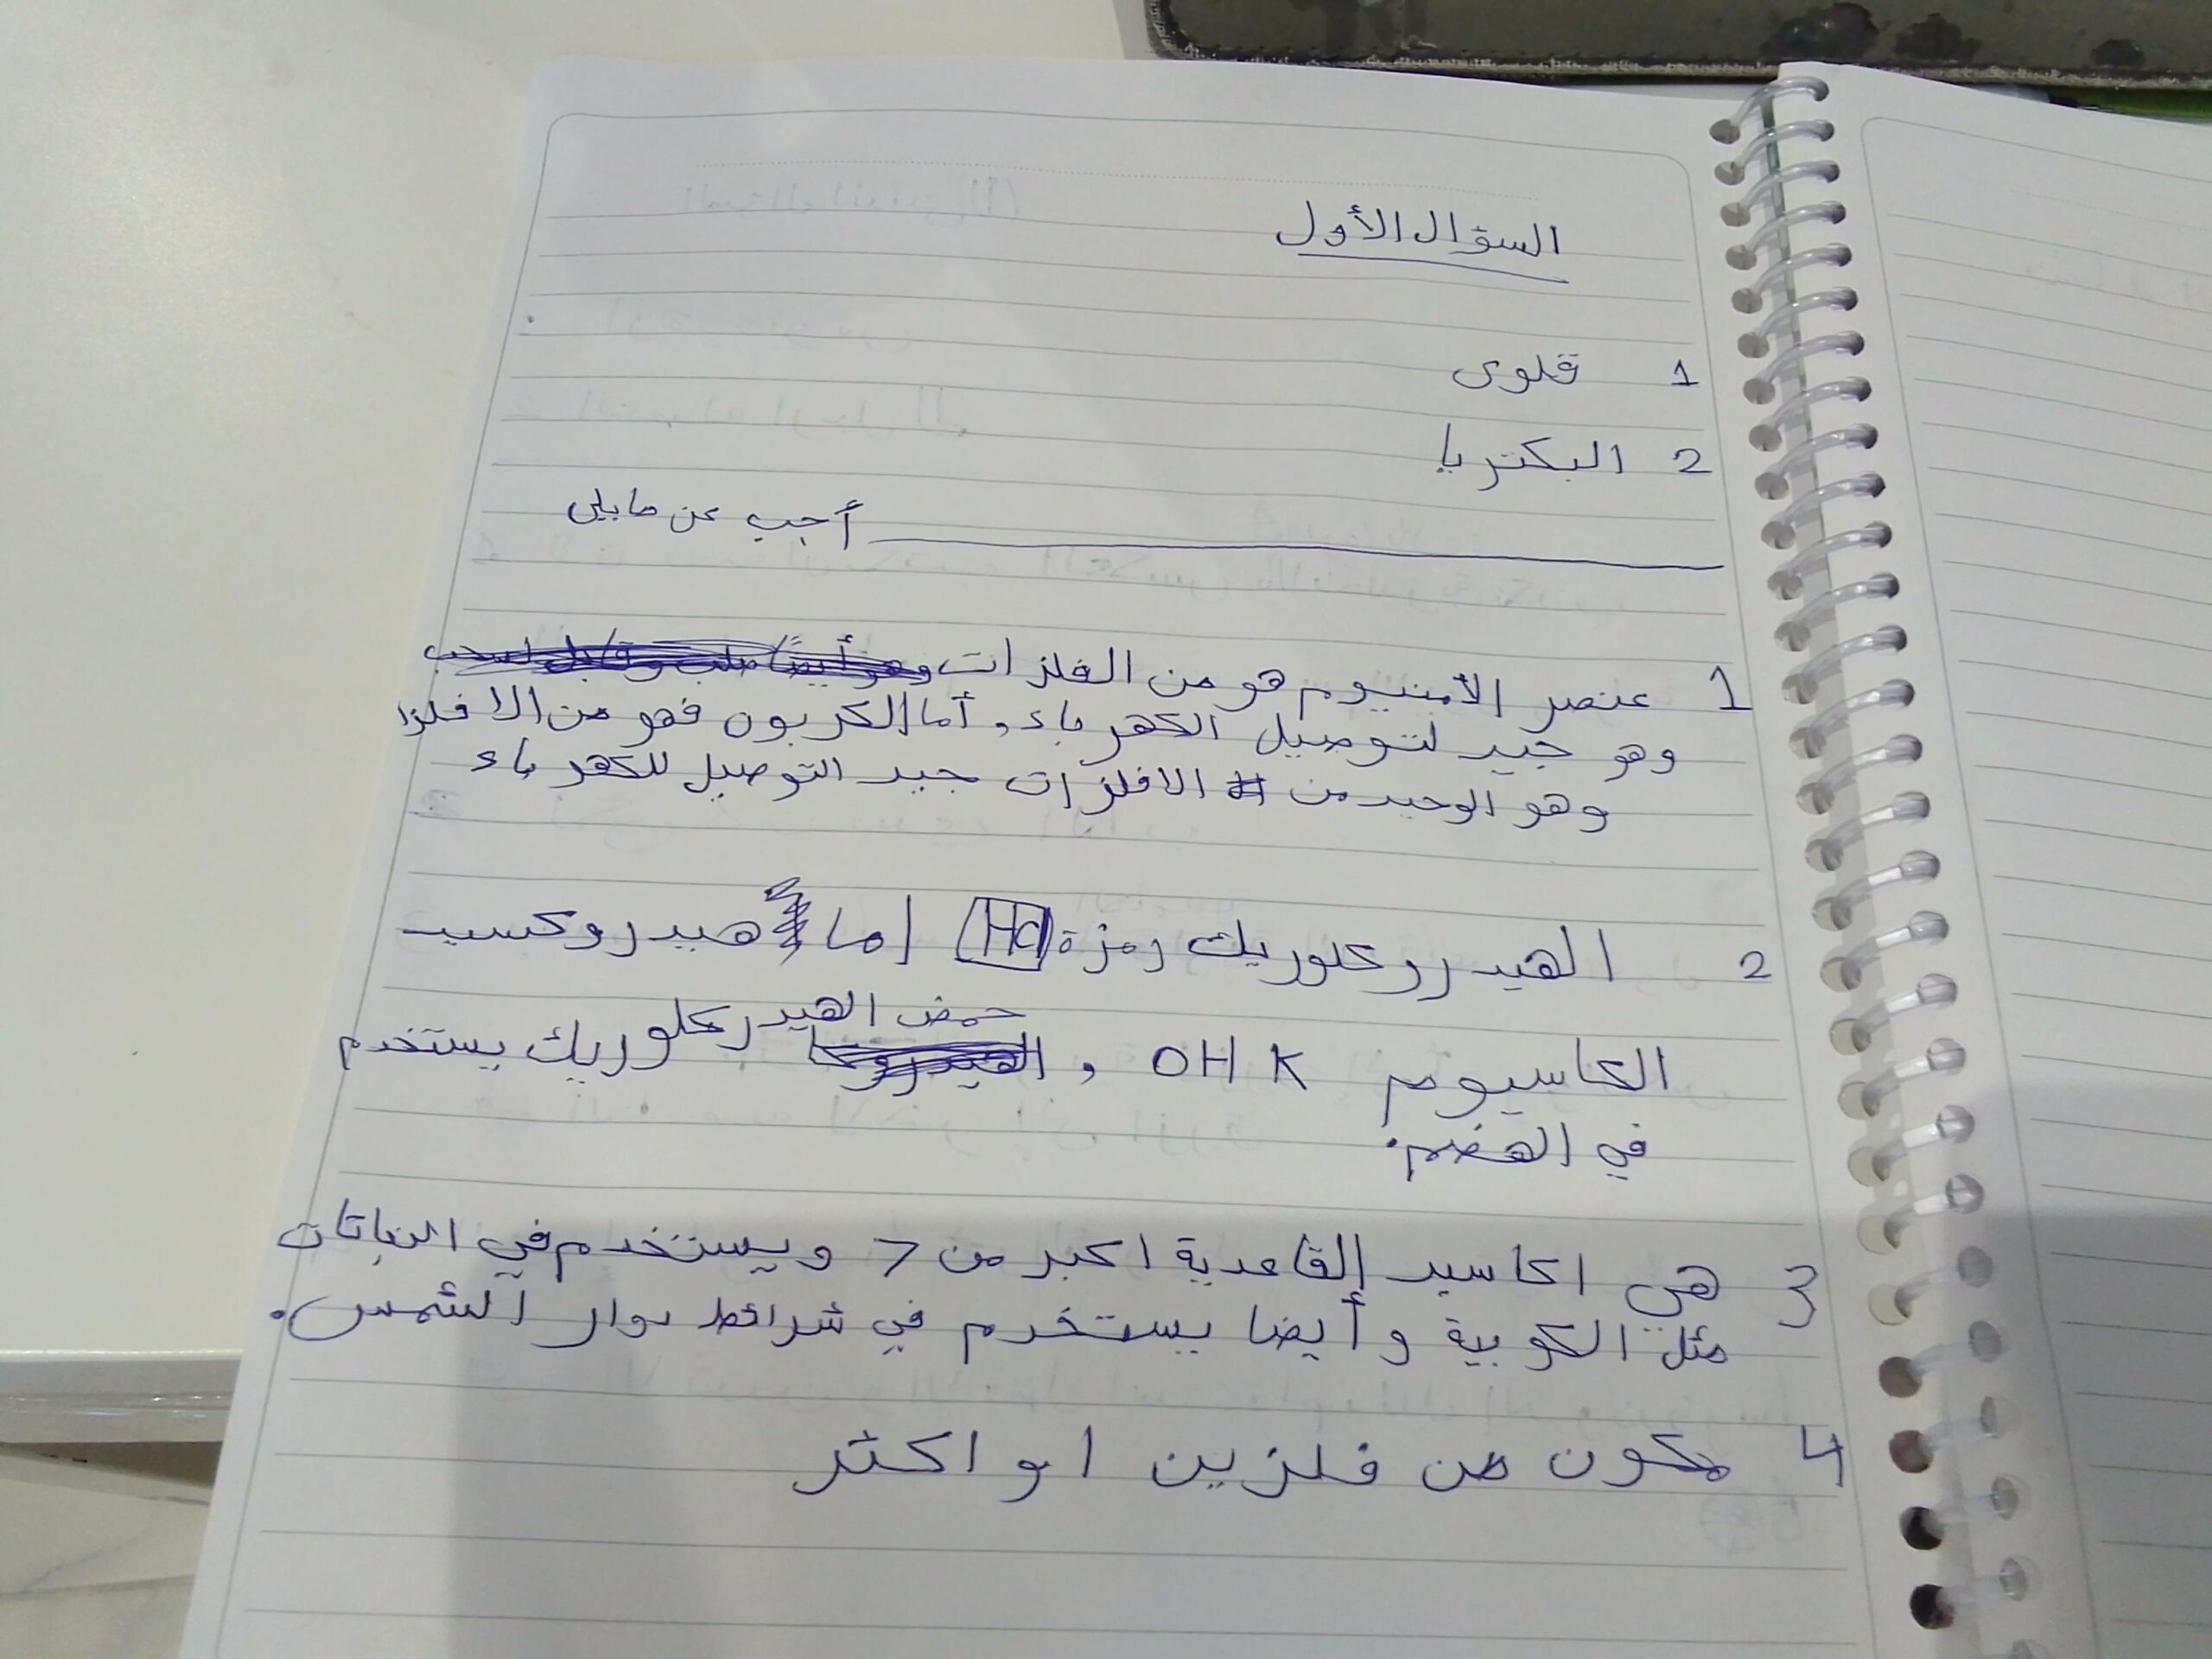 السؤال الأول
1 قلوى
2 البكتريا
أجب عن مايلي
1 عنصر الأمنيوم هو من الفلزات
وهو جيد لتوصيل الكهرباء، أما الكربون فهو من الافلزا
وهو الوحيد من الافلزات جيد التوصيل للكهرباء
2 الهيدروكلوريك رمزة Hcl اما هيدروكسيد
حمض الهيدركلوريك يستخدم
الكاسيوم OH K ،
في الهضم.
3 هي اكاسيد القاعدية اكبر من 7 ويستخدم في النباتات
مثل الكوبية وأيضا يستخدم في شرائط دوار الشمس.
4 مكون من فلزين او اكثر